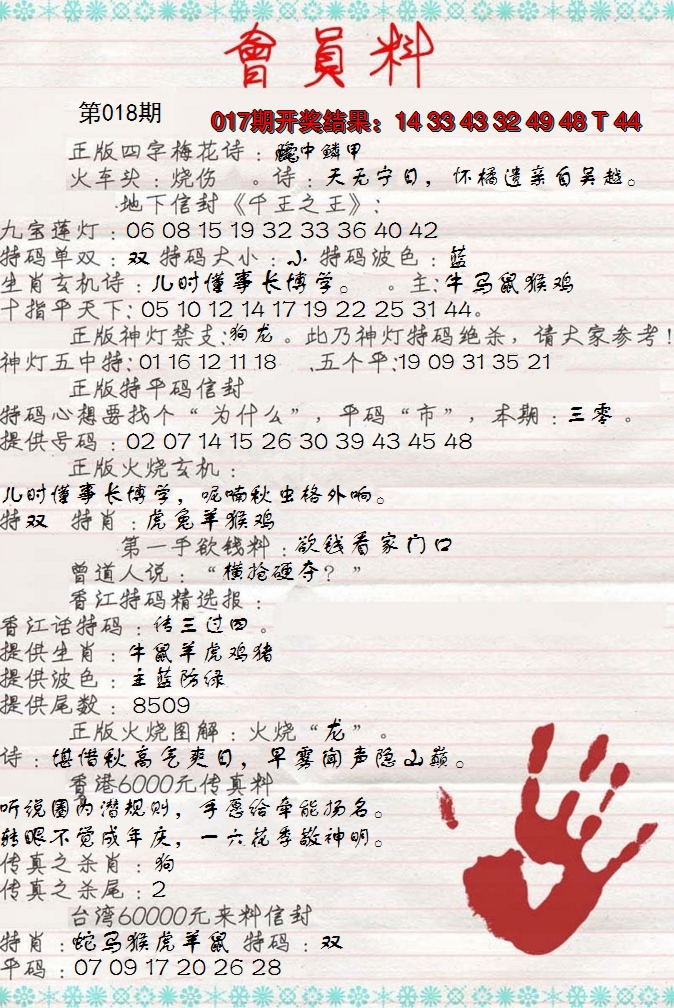 會員料
第018期
017期开奖结果：14 33 43 32 49 48 T 44
正版四字梅花诗：中鳞甲
火车头：烧伤 。诗：天无宁日，怀橘遗亲自吴越。
地下信封《千王之王》：
九宝莲灯：06 08 15 19 32 33 36 40 42
特码单双：双 特码大小：小 特码波色：蓝
生肖玄机诗：儿时懂事长博学。 。主：牛马鼠猴鸡
十指平天下：05 10 12 14 17 19 22 25 31 44。
正版神灯禁支：狗龙。此乃神灯特码绝杀，请大家参考！
神灯五中特：01 16 12 11 18 .五个平：19 09 31 35 21
正版特平码信封
特码心想要找个“为什么”，平码“市”，本期：三零。
提供号码：02 07 14 15 26 30 39 43 45 48
正版火烧玄机：
儿时懂事长博学，呢喃秋虫格外响。
特双 特肖：虎兔羊猴鸡
第一手欲钱料：欲钱看家门口
曾道人说：“横抢硬夺？”
香江特码精选报：
香江话特码：传三过四。
提供生肖：牛鼠羊虎鸡猪
提供波色：主蓝防绿
提供尾数：8509
正版火烧图解：火烧“龙”。
诗：堪借秋高气爽日，早雾闻声隐山巅。
香港6000元传真料
听说圈内潜规则，手愿给牵能扬名。
转眼不觉成年庆，一六花季敬神明。
传真之杀肖：狗
传真之杀尾：2
台湾60000元来料信封
特肖：蛇马猴虎羊鼠 特码：双
平码：07 09 17 20 26 28